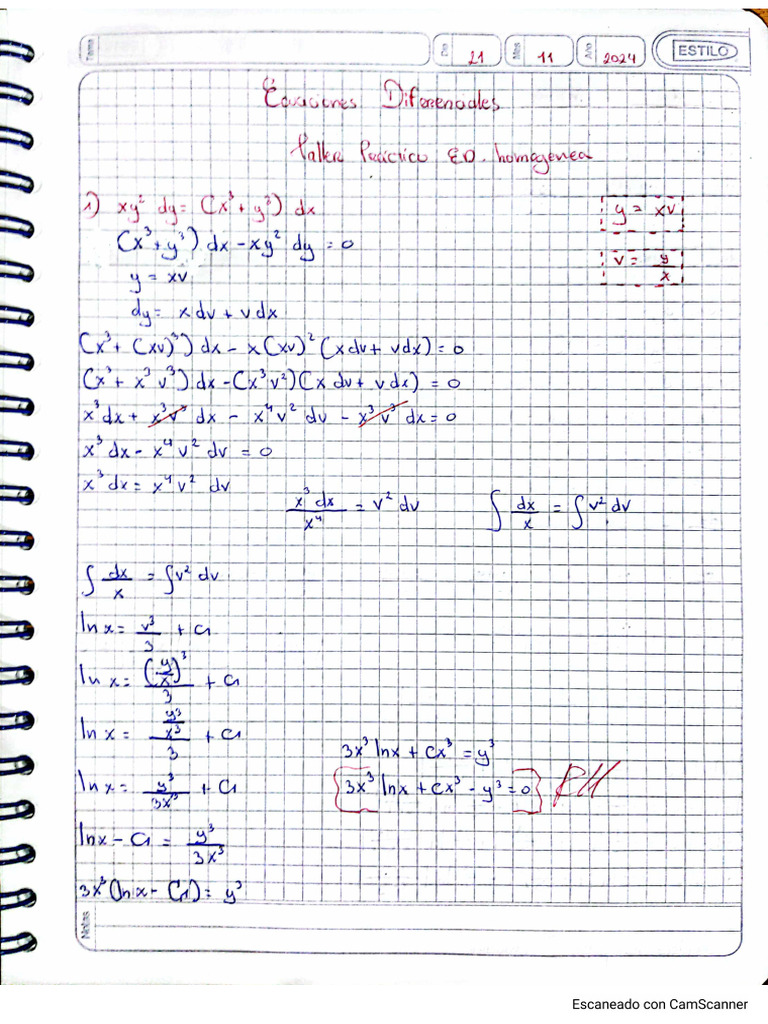 Tema
Dia 21 Mes 11 Año 2024 ESTILO
Ecuaciones Diferenciales
Taller Práctico ED. homogenea
1) xy² dy = (x³ + y³) dx
y = xv
(x³ + y³) dx - xy² dy = 0
v = y/x
y = xv
dy = x dv + v dx
(x³ + (xv)³) dx - x(xv)² (x dv + v dx) = 0
(x³ + x³ v³) dx - (x³v²)(x dv + v dx) = 0
x³ dx + x³v³ dx - x⁴v² dv - x³v³ dx = 0
x³ dx - x⁴ v² dv = 0
x³ dx = x⁴ v² dv
x³ dx / x⁴ = v² dv
∫ dx/x = ∫ v² dv
∫ dx/x = ∫ v² dv
ln x = v³/3 + C1
ln x = (y/x)³/3 + C1
ln x = (y³/x³)/3 + C1
ln x = y³/3x³ + C1
ln x - C1 = y³/3x³
3x³(ln x - C1) = y³
3x³ ln x + Cx³ = y³
3x³ ln x + Cx³ - y³ = 0
Notas
Escaneado con CamScanner